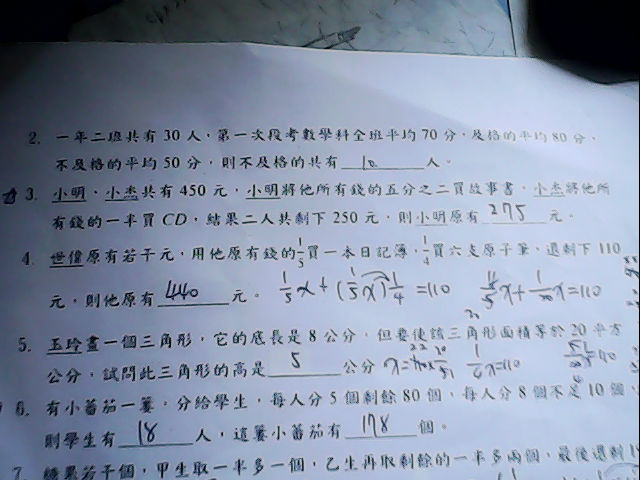 2. 一年二班共有 30 人，第一次段考數學科全班平均 70 分，及格的平均 80 分，
不及格的平均 50 分，則不及格的共有 10 人。
3. 小明、小杰共有 450 元，小明將他所有錢的五分之二買故事書，小杰將他所
有錢的一半買 CD，結果二人共剩下 250 元，則小明原有 275 元。
4. 世偉原有若干元，用他原有錢的 買一本日記簿， 買六支原子筆，還剩下 110
元，則他原有 440 元。 1/5x+(1/5x)1/4=110
5. 玉玲畫一個三角形，它的底長是 8 公分，但要使該三角形面積等於 20 平方
公分，試問此三角形的高是 5 公分
6. 有小蕃茄一簍，分給學生，每人分 5 個剩餘 80 個，每人分 8 個不足 10 個，
則學生有 18 人，這簍小蕃茄有 178 個。
7. 糖果若干個，甲生取一半多一個，乙生再取剩餘的一半多兩個，最後還剩